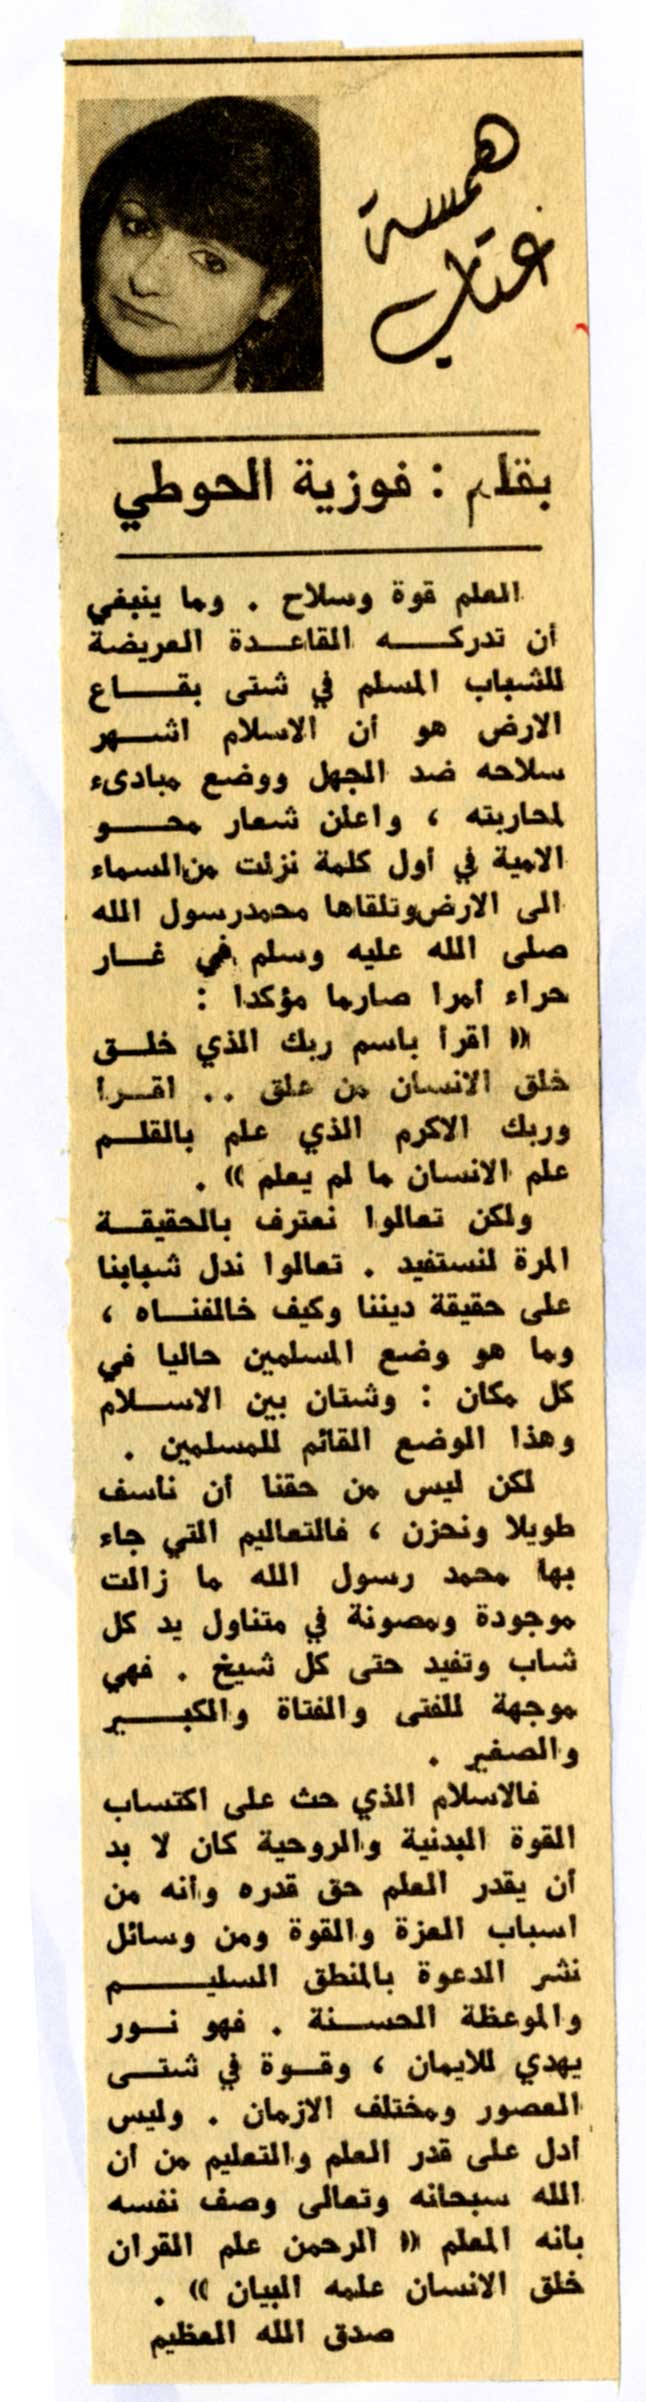 همسة
عتاب
بقلم : فوزية الحوطي
العلم قوة وسلاح . وما ينبغي
أن تدركه القاعدة العريضة
للشباب المسلم في شتى بقاع
الارض هو أن الاسلام اشهر
سلاحه ضد الجهل ووضع مبادىء
لمحاربته ، واعلن شعار محو
الامية في أول كلمة نزلت من السماء
الى الارض وتلقاها محمد رسول الله
صلى الله عليه وسلم في غار
حراء أمرا صارما مؤكدا :
(( اقرأ باسم ربك الذي خلق
خلق الانسان من علق .. اقرا
وربك الاكرم الذي علم بالقلم
علم الانسان ما لم يعلم )) .
ولكن تعالوا نعترف بالحقيقة
المرة لنستفيد . تعالوا ندل شبابنا
على حقيقة ديننا وكيف خالفناه ،
وما هو وضع المسلمين حاليا في
كل مكان : وشتان بين الاسلام
وهذا الوضع القائم للمسلمين .
لكن ليس من حقنا أن ناسف
طويلا ونحزن ، فالتعاليم التي جاء
بها محمد رسول الله ما زالت
موجودة ومصونة في متناول يد كل
شاب وتفيد حتى كل شيخ . فهي
موجهة للفتى والفتاة والكبير
والصغير .
فالاسلام الذي حث على اكتساب
القوة البدنية والروحية كان لا بد
أن يقدر العلم حق قدره وأنه من
اسباب العزة والقوة ومن وسائل
نشر الدعوة بالمنطق السليم
والموعظة الحسنة . فهو نور
يهدي للايمان ، وقوة في شتى
العصور ومختلف الازمان . وليس
أدل على قدر العلم والتعليم من أن
الله سبحانه وتعالى وصف نفسه
بانه المعلم (( الرحمن علم القران
خلق الانسان علمه البيان )) .
صدق الله العظيم